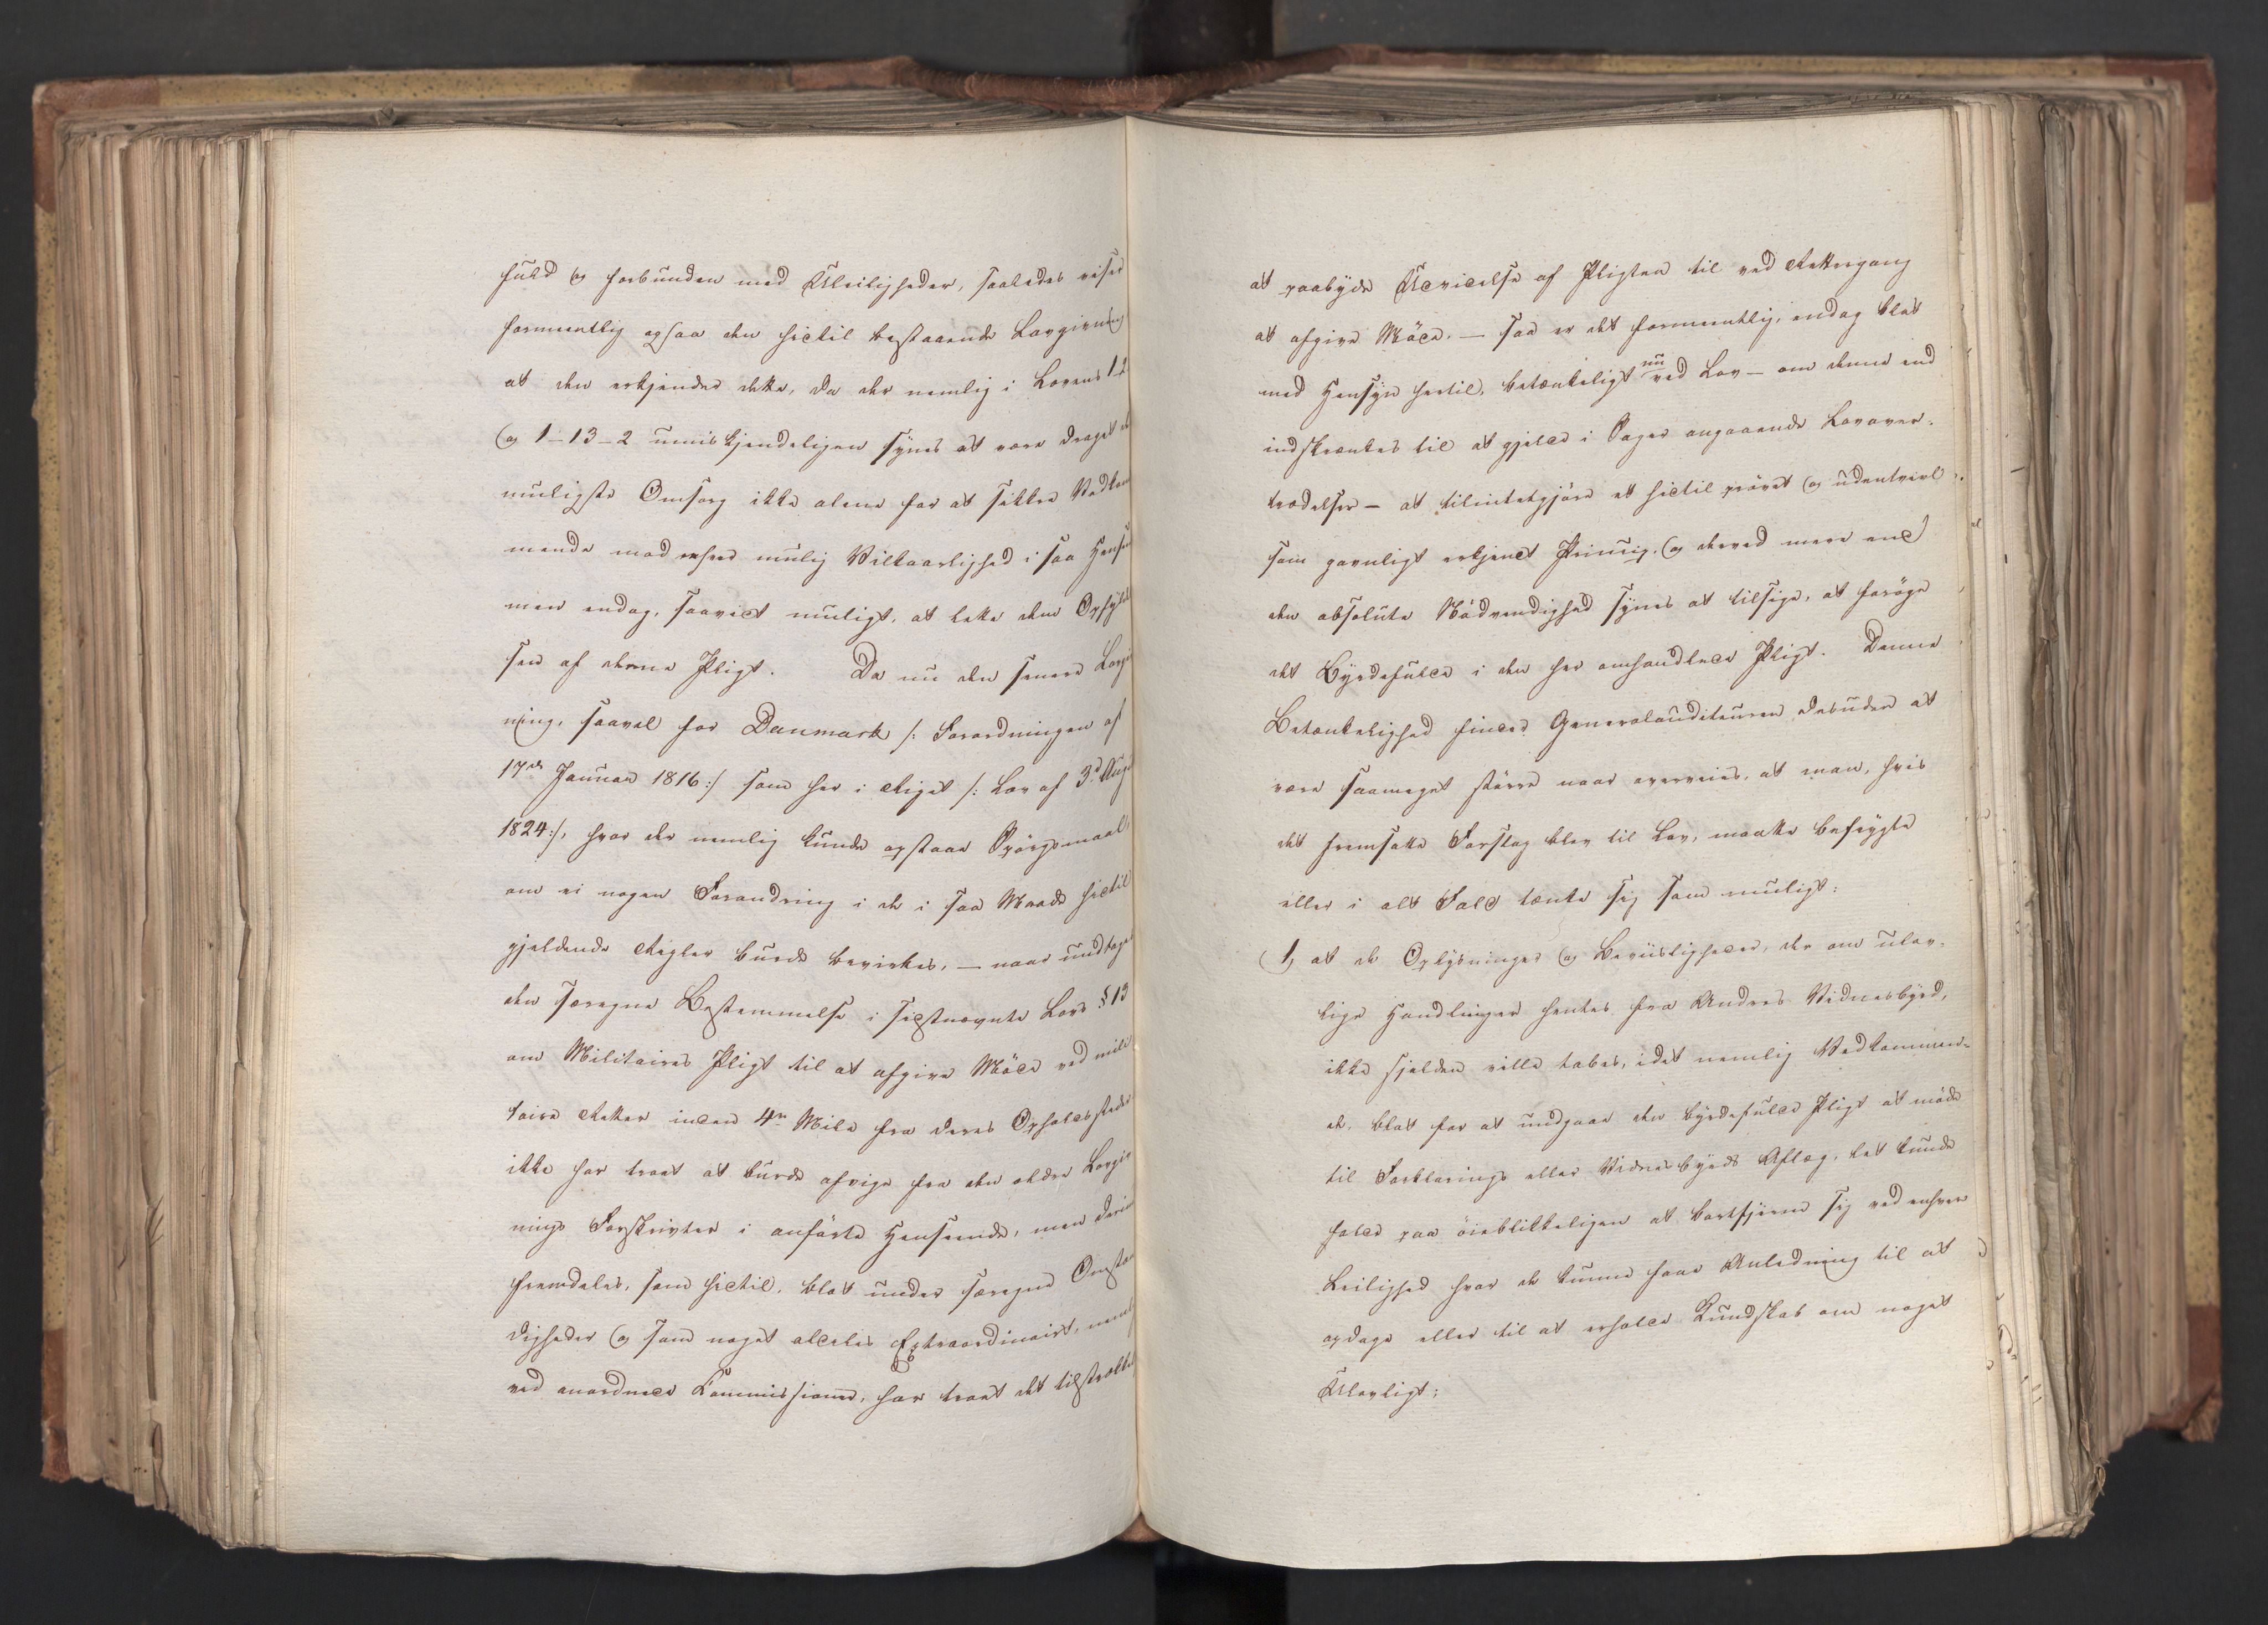 fuld og forbunden med Uleiligheder, saaledes viser
formeentlig ogsaa den hidtil bestaaende Lovgivning
at den erkjender dette, da der nemlig i Lovens
og 1-13-2 umiskjendeligen synes at være draget
muligste Omsorg ikke alene for at sikkre Vedkom
mende mod enhver mulig Vilkaarlighed i saa Hense
men endog, saavidt muligt, at lette dem Opfyldel
sen af denne Pligt. Da nu den senere Lovgi
ning, saavel for Danmark /: Forordningen af
17de Januar 1816:/ som her i Riget /: Lov af 3d Aug
1824:/, hvor der nemlig kunde opstaae Spörgsmaal
om ei nogen Forandring i de i saa Maade hidtil
gjeldende Regler burde bevirkes, — naar undtages
den særegne Bestemmelse i sidstnævnte Lovs § 13
om Militaires Pligt til at afgive Möde ved mili
taire Retter inden 4re Mile fra deres Opholdssteder
ikke har troet at burde afvige fra den ældre Lovgiv
nings Forskrivter i anförte Henseende, men
fremdeles, som hidtil, blot under særegne Omstæn
digheder og som noget aldeles Extraordinairt, nemlig
ved anordnede Commissioner, har troet det tilstrække
at paabyde Udvidelse af Pligten til ved Rettergang
at afgive Möde. — saa er det formeentlig, endog blot
med Hensyn hertil, betænkeligt nu ved Lov — om denne end
indskrænkes til at gjelde i Sager angaaende Lovover-
trædelser — at tilintetgjöre et hidtil prövet og udentvivl
som gavnligt erkjendt Princip, og derved mere end
den absolute Nödvendighed synes at tilsige, at foröge
det Byrdefulde i den her omhandlede Pligt. Denne
Betænkelighed finder Generalauditeuren desuden at
være saameget större naar overveies, at man, hvis
det fremsatte Forslag blev til Lov, maatte befrygte
eller i alt Fald tænke sig som muligt:
1, at de Oplysninger og Beviisligheder, der om ulov-
lige Handlinger hentes fra Andres Vidnesbyrd,
ikke sjelden ville tabes, idet nemlig Vedkommen-
de, blot for at undgaae den byrdefulde Pligt at möde
til Forklarings eller Vidnesbyrds Aflæg, let kunde
falde paa öieblikkeligen at bortfjerne sig ved enhver
Leilighed hvor de kunne faae Anledning til at
opdage eller til at erholde Kundskab om noget
Ulovligt;